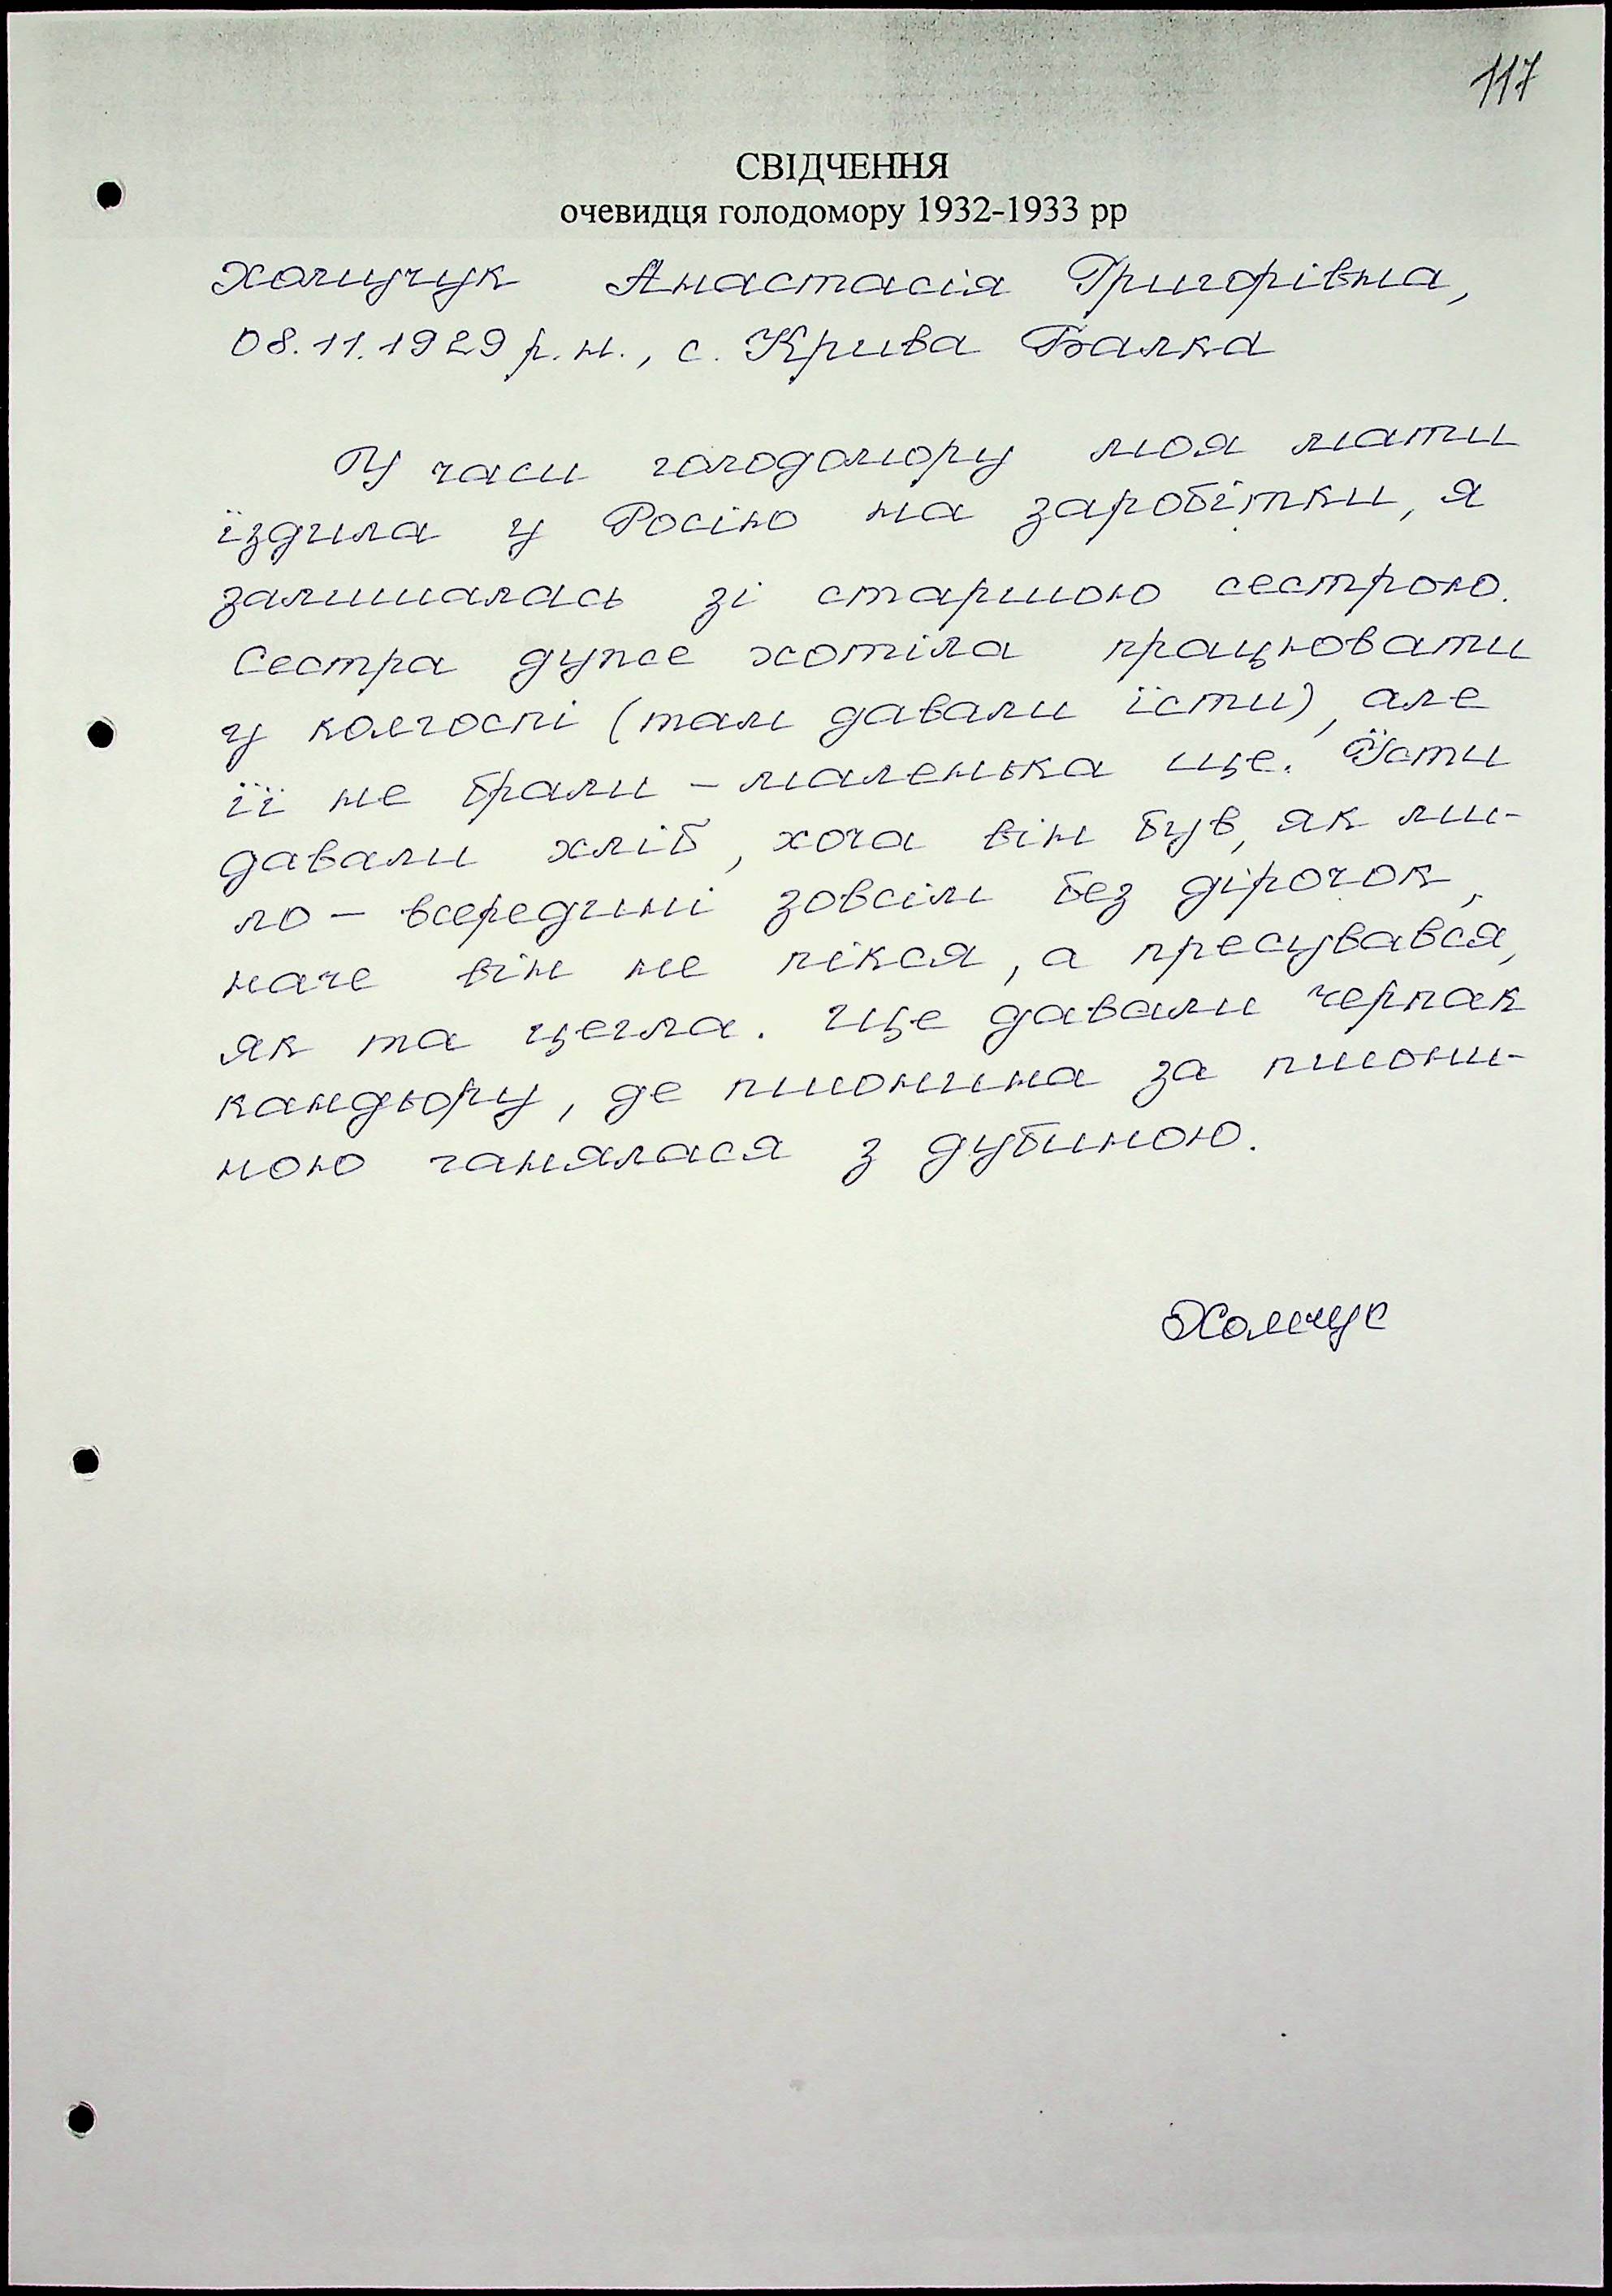 117
СВІДЧЕННЯ
очевидця голодомору 1932-1933 рр
Анастасія Григорівна,
08.11.1929 р.н., с. Крива Балка
У часи голодомору моя мати
їздила у Росію на заробітки, я
залишалась зі старшою сестрою.
Сестра дуже хотіла працювати
у колгоспі (там давали їсти), але
її не брали – маленька ще. Їсти
давали хліб, хоча він був, як ми-
ло – всередині зовсім без дірочок,
наче він не пікся, а пресувався,
як та цегла. Ще давали черпак
кандьору, де пшонина за пшони-
ною ганялася з дубиною.